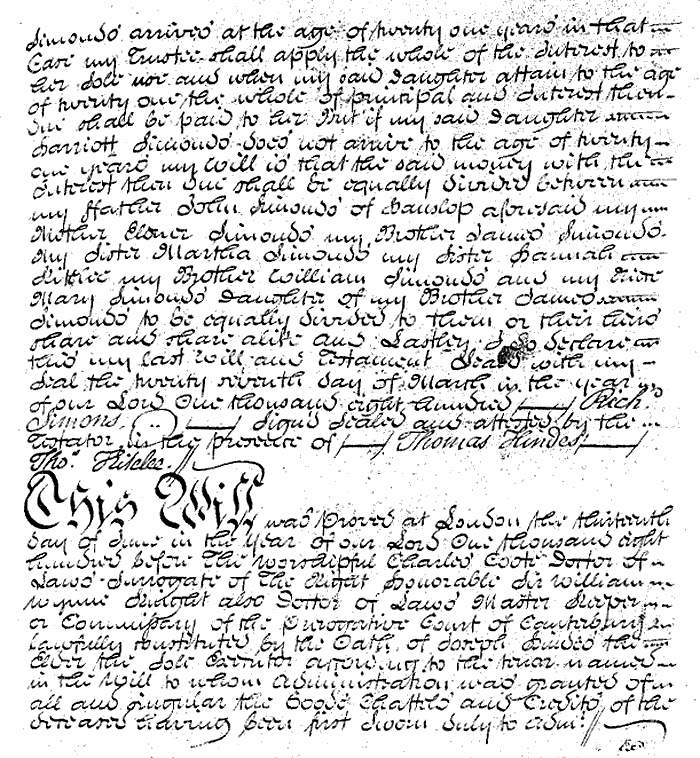 Simonds arrives at the age of twenty one years in that
Case my Trustee shall apply the whole of the Interest to
her sole use and when my said Daughter attain to the age
of twenty one the whole of principal and Interest then
due shall be paid to her But if my said Daughter
Harriott Simonds does not arrive to the age of twenty
one years my Will is that the said money with the
Interest then due shall be equally divided between
my ffather John Simonds of Hanslop aforesaid my
Mother Elener Simonds my Brother James Simonds
my Sister Martha Simonds my Sister Hannah
my Brother William Simonds and my Niece
Mary Simonds Daughter of my Brother James
Simonds to be equally divided to them or their heirs
share and share alike and Lastly I do declare
this my last Will and Testament Seald with my
Seal the twenty seventh day of March in the year
of our Lord One thousand eight hundred Richd.
Simons. Signd Sealed and attested by the
Testator in the presence of Thomas Hindes
Thos.
This Will was proved at London the thirteenth
day of June in the year of our Lord One thousand eight
hundred before The Worshipful Charles Coote Doctor of
Laws Surrogate of The Right Honorable Sir William
Wynne Knight also Doctor of Laws Master Keeper
or Commissary of the Prerogative Court of Canterbury
lawfully constituted by the Oath of Joseph Hindes the
Elder the Sole Executor according to the tenor named
in the Will to whom Administration was granted of
all and singular the Goods Chattels and Credits of the
deceased having been first sworn duly to Admr.